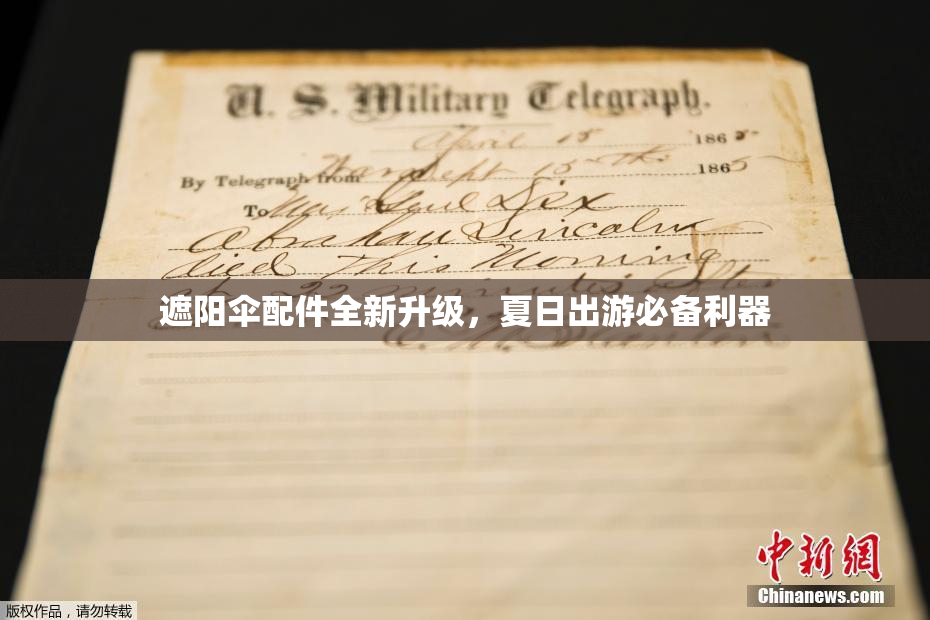 U. S. Military Telegraph.
April 15 1865
By Telegraph from War Dept 15th 1865
To Maj Genl Dix
Abraham Lincoln
died This Morning
at 22 minutes After
遮阳伞配件全新升级，夏日出游必备利器
E. M. Stanton
中新網
Chinanews.com
版权作品，请勿转载